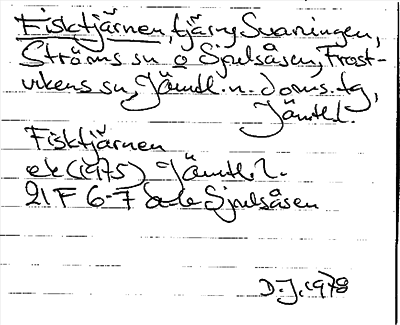 Fisktjärnen, tjärn, Svaningen,
Ströms sn o Sjoulsåsen, Frost-
vikens sn, Jämtl. n. doms. tg,
Jämtl.
Fisktjärnen
ek (1975) Jämtl.
21 F 6-7 Sjoulsåsen
D.J. 1978